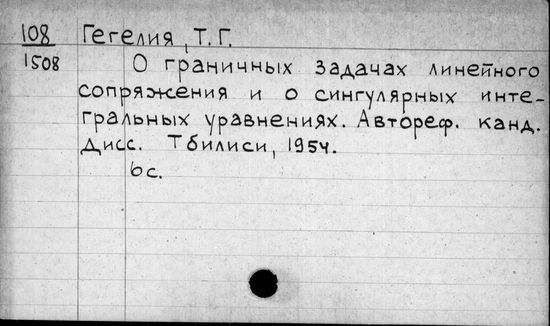 108 Гегелия, Т.Г.
1508 О граничных задачах линейного
сопряжения и о сингулярных инте-
гральных уравнениях. Автореф. канд.
дисс. Тбилиси, 1954.
6с.